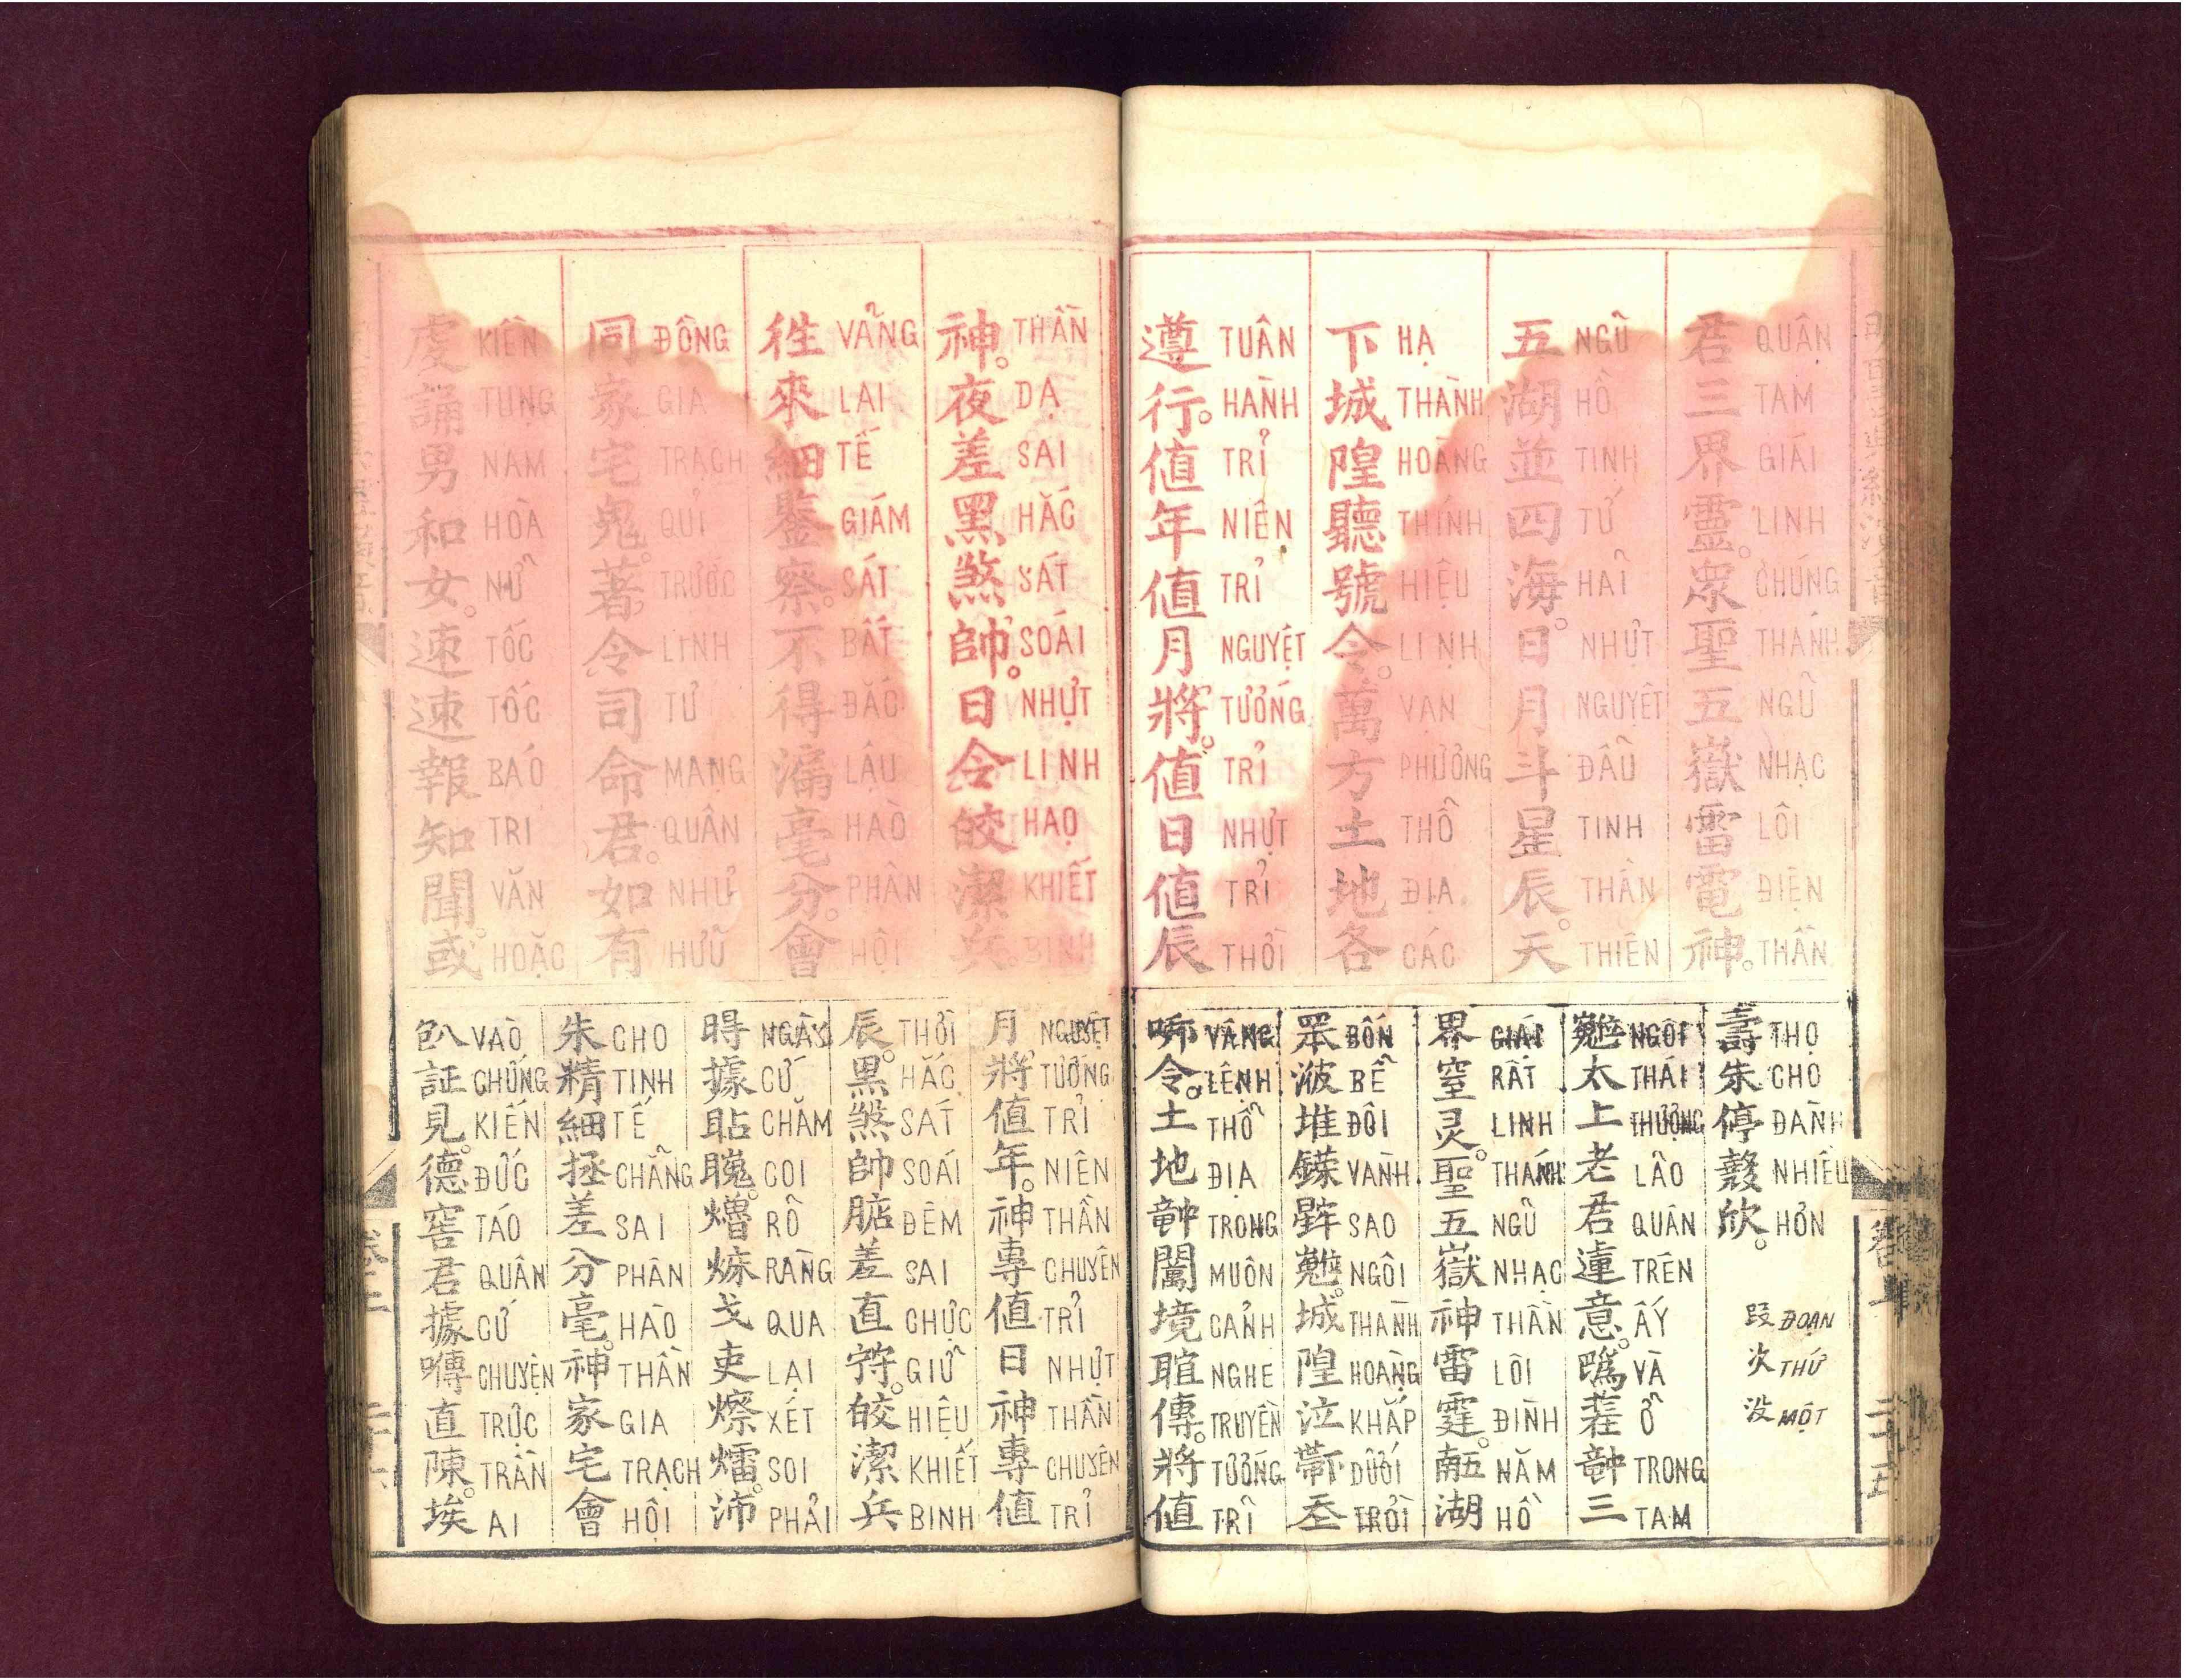 君三界靈。眾聖五嶽雷電神。
QUÂN TAM GIÁI LINH CHÚNG THÁNH NGŨ NHẠC LÔI ĐIỆN THẦN
五湖並四海。日月斗星辰。天
NGŨ HỒ TỊNH TỨ HẢI NHỰT NGUYỆT ĐẨU TINH THẦN THIÊN
下城隍聽號令。萬方土地各
HẠ THÀNH HOÀNG THÍNH HIỆU LỊNH VẠN PHƯƠNG THỔ ĐỊA CÁC
遵行。值年值月將。值日值辰
TUÂN HÀNH TRỈ NIÊN TRỈ NGUYỆT TƯỚNG TRỈ NHỰT TRỈ THỜI
壽朱停欣。
THỌ CHO ĐÀNH NHIỀU HƠN
段次没
ĐOẠN THỨ MỘT
太上老君蓮意。三
NGÔI THÁI THƯỢNG LÃO QUÂN TRÊN ẤY VÀ Ở TRONG TAM
界窒灵。聖五嶽神雷霆。湖
GIÁI RẤT LINH THÁNH NGŨ NHẠC THẦN LÔI ĐÌNH NĂM HỒ
堆城隍泣
BỐN BỂ ĐÔI VÀNH SAO NGÔI THÀNH HOÀNG KHẮP DƯỚI TRỜI
令。土地境傳。將值
VÂNG LỆNH THỔ ĐỊA TRONG MUÔN CẢNH NGHE TRUYỀN TƯỚNG TRỈ
神。夜差黑煞帥。日令皎潔兵。
THẦN DẠ SAI HẮC SÁT SOÁI NHỰT LỊNH HẠO KHIẾT BINH
徃來細鑒察。不得漏毫分。會
VÃNG LAI TẾ GIÁM SÁT BẤT ĐẮC LẬU HÀO PHÂN HỘI
同家宅鬼。著令司命君。如有
ĐỒNG GIA TRẠCH QUỈ TRƯỚC LỊNH TƯ MẠNG QUÂN NHƯ HỮU
虔誦男和女。速速報知聞。或
KIỀN TỤNG NAM HÒA NỮ TỐC TỐC BÁO TRI VĂN HOẶC
月將值年。神專值日神專值
NGUYỆT TƯỚNG TRỈ NIÊN THẦN CHUYÊN TRỈ NHỰT THẦN CHUYÊN TRỈ
辰。黑煞帥差直。皎潔兵
THỜI HẮC SÁT SOÁI ĐÊM SAI CHỰC GIỮ HIỆU KHIẾT BINH
據戈吏沛
NGÀY CỨ CHĂM COI RÕ RÀNG QUA LẠI XÉT SOI PHẢI
朱精細拯差分毫。神家宅會
CHO TINH TẾ CHẲNG SAI PHÂN HÀO THẦN GIA TRẠCH HỘI
証見。德君據囀直陳。埃
VÀO CHỨNG KIẾN ĐỨC TÁO QUÂN CỨ CHUYỆN TRỰC TRẦN AI